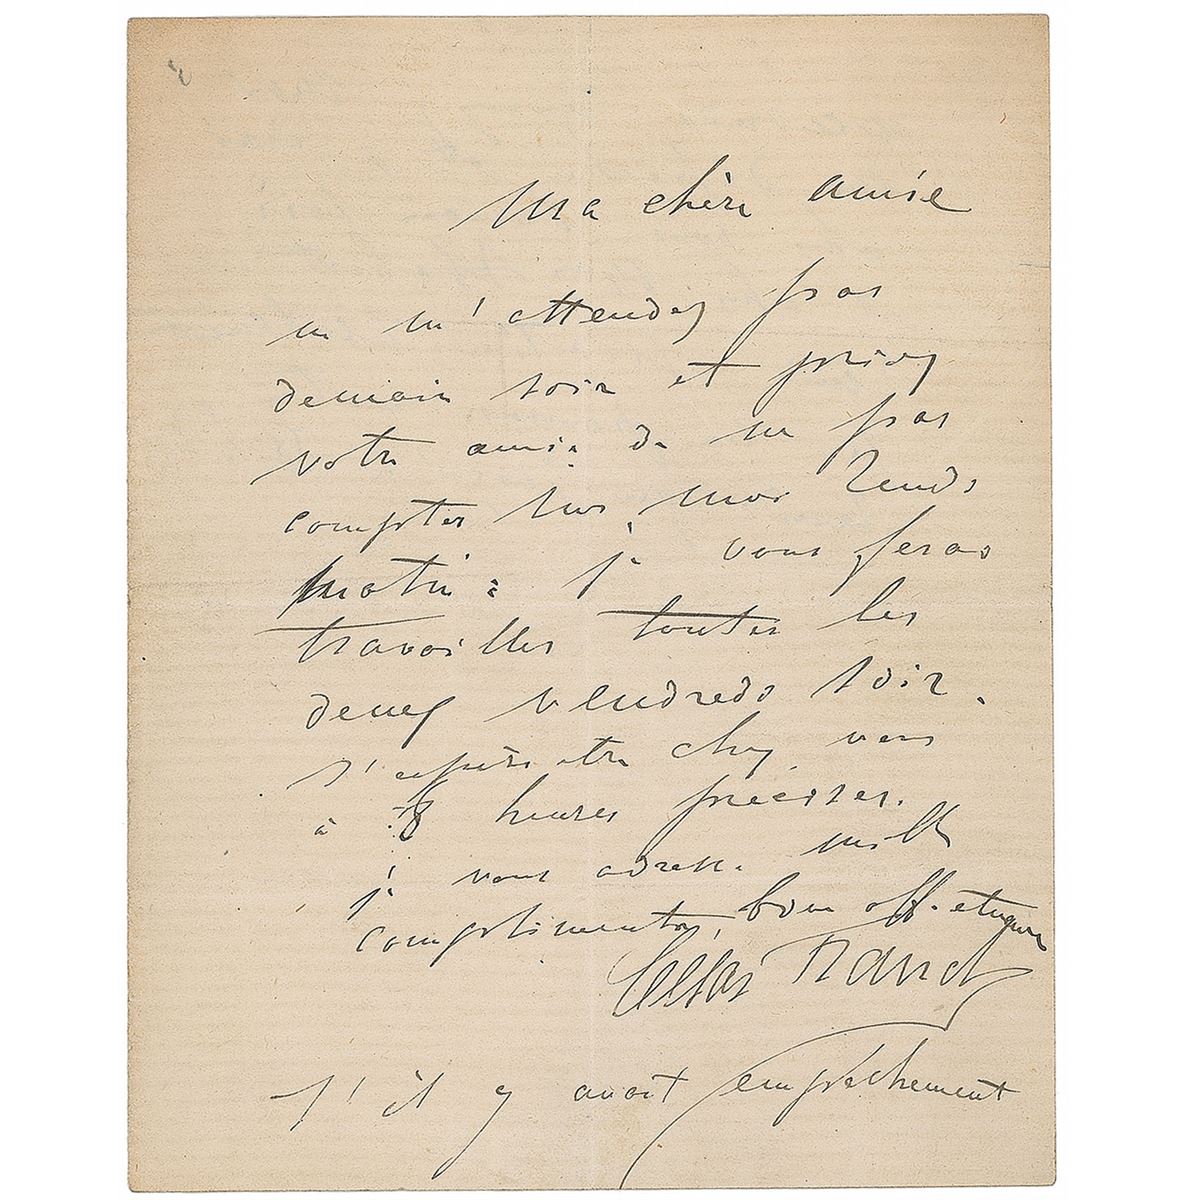 Ma chère amie
ne m'attendez pas
demain soir et priez
votre amie de ne pas
compter sur moi lundi
matin : je vous ferai
travailler toutes les
deux vendredi soir.
J'espère être chez vous
à 8 heures précises.
je vous adresse mille
compliments, bien affectueux
César Franck
S'il y avait empêchement